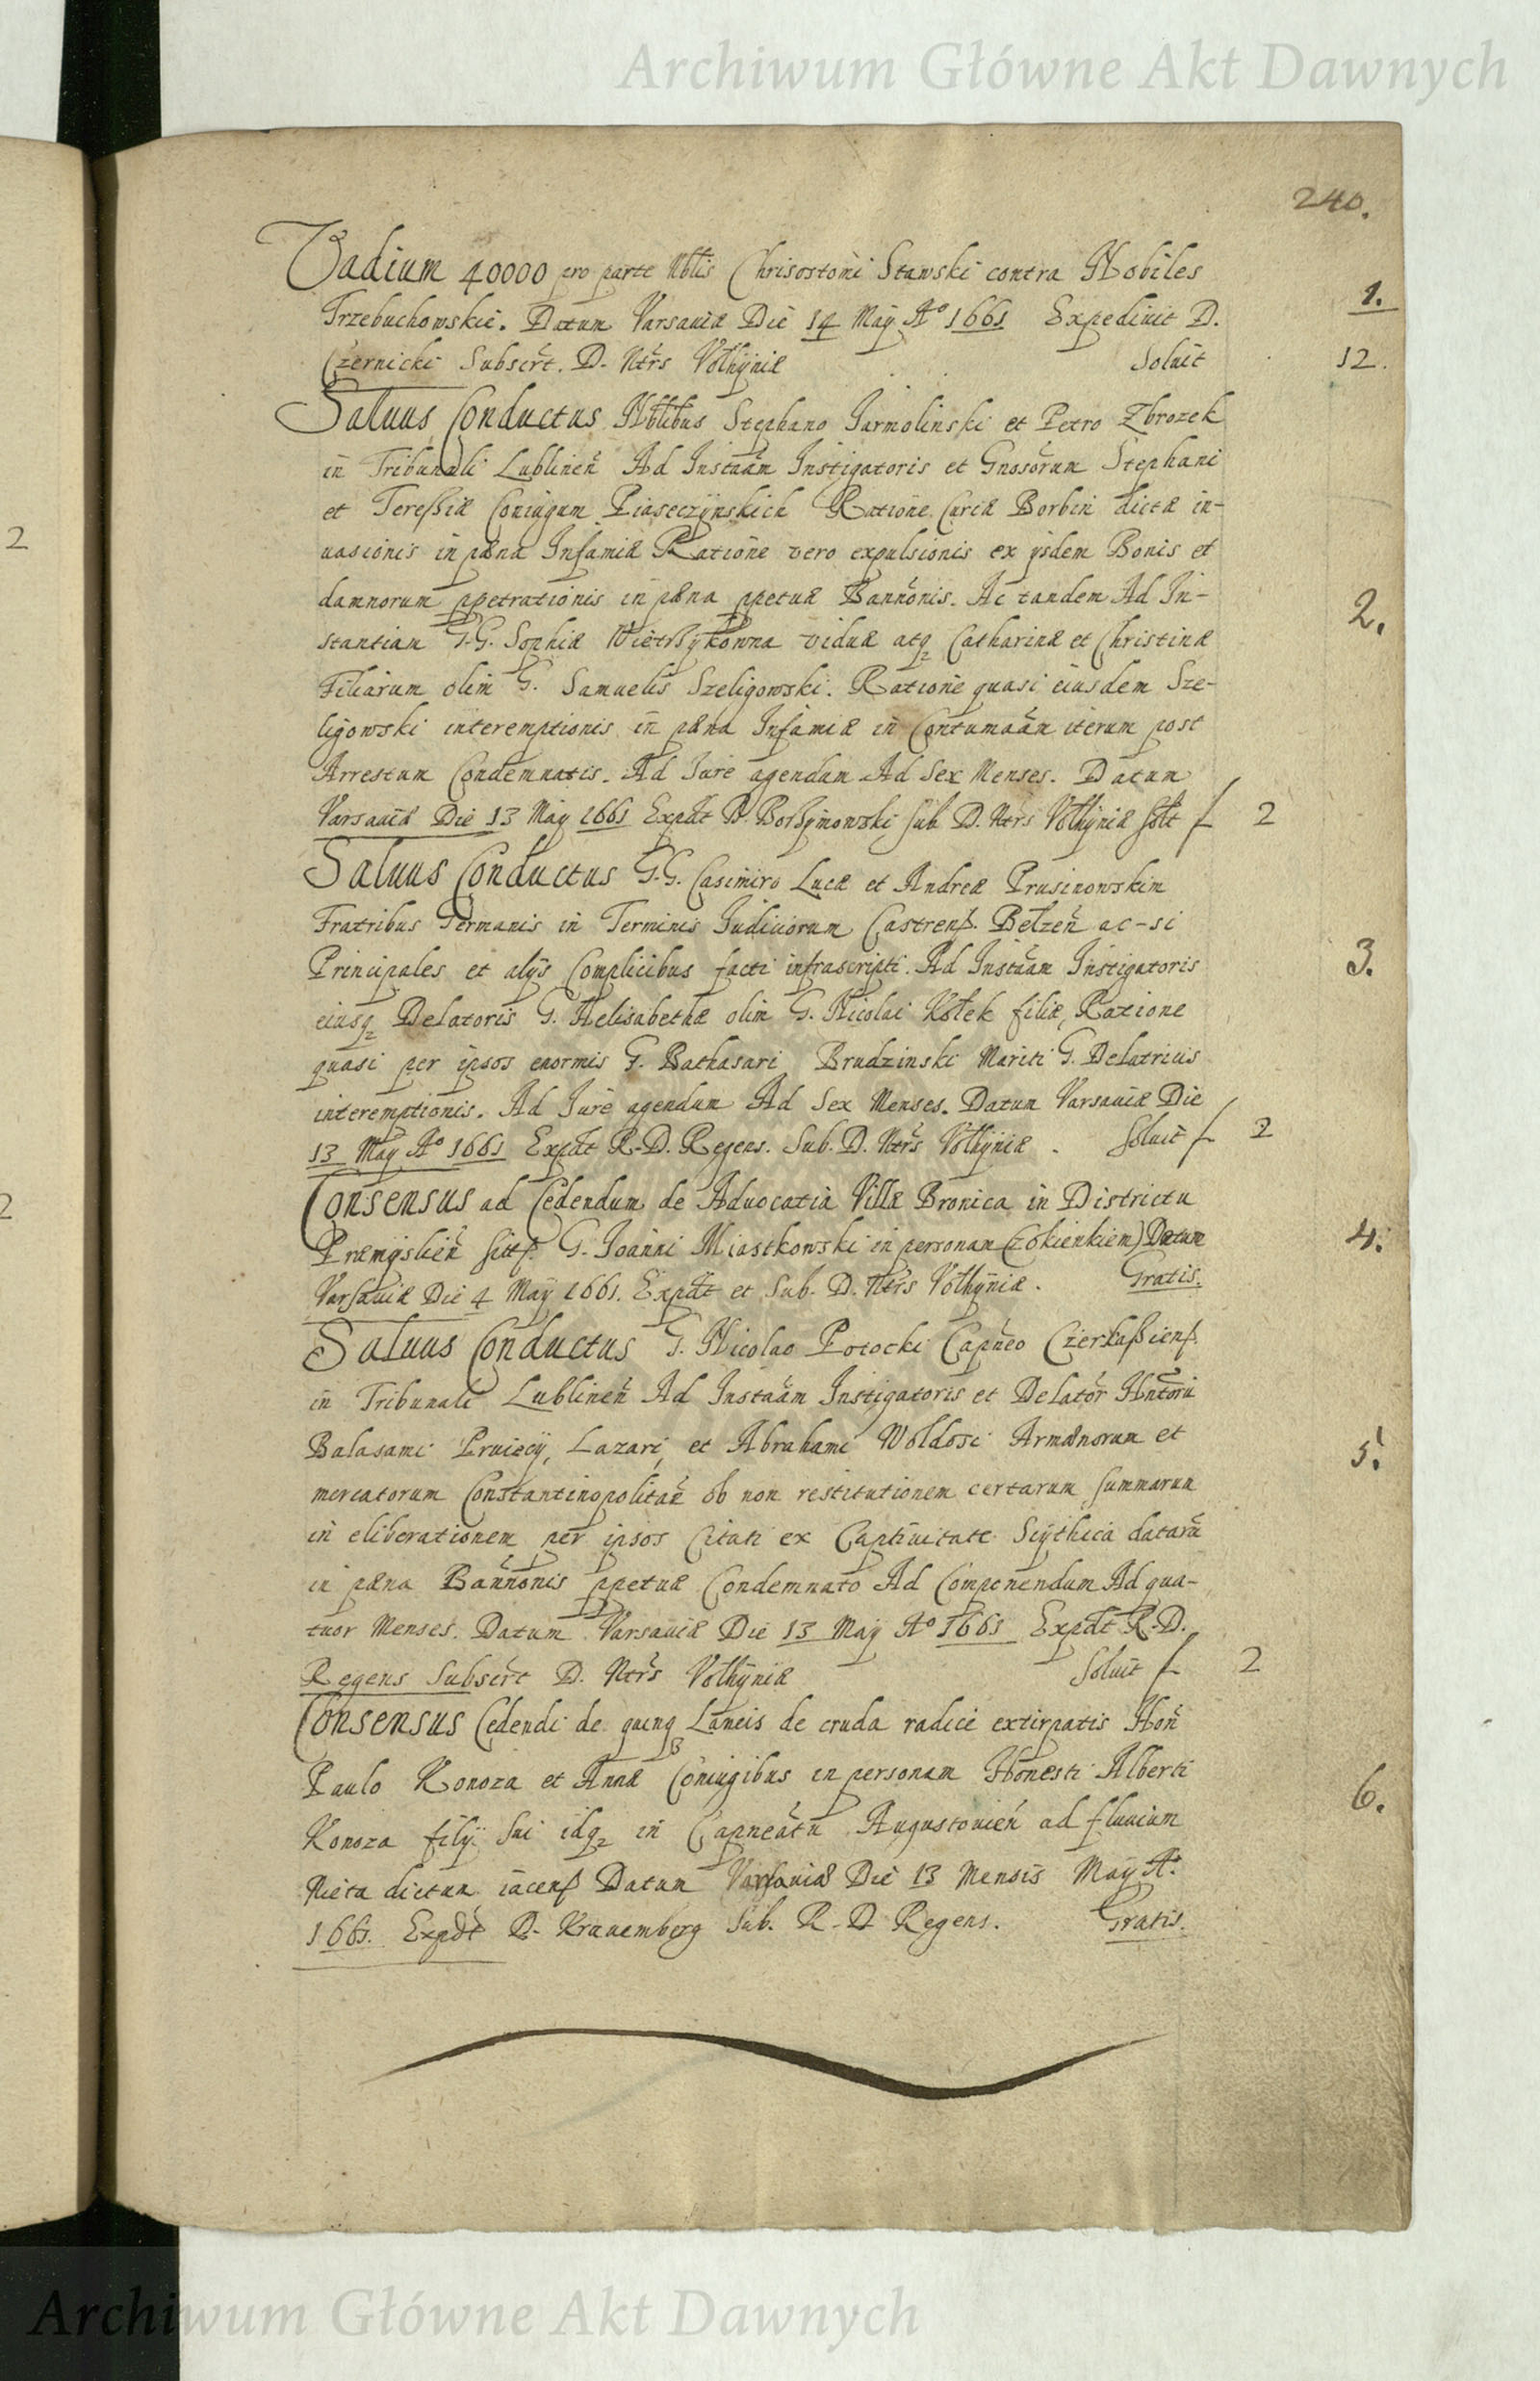 Archiwum Główne Akt Dawnych
240.
Vadium 40000 pro parte Nblis Chrisostomi Stawski contra Nobiles
Trzebuchowskie. Datum Varsaviæ Die 14 Maÿ Aº 1661 Expedivit D.
1.
Czernicki Subscrt. D. Ntrs Volhÿniæ Soluit
12.
Saluus Conductus Nblibus Stephano Jarmolinski et Petro Zbrozek
in Tribunali Lublinen Ad Instãam Instigatoris et Gnosorum Stephani
et Tereßiæ Coniugum Piaseczÿnskich Ratione Curiæ Borbin dictæ in-
uasionis in pæna Infamiæ Ratione vero expulsionis ex ÿsdem Bonis et
damnorum ppetrationis in pæna ppetuæ Bannonis. Ac tandem Ad In-
2.
stantiam G.G. Sophiæ Wietrßÿkowna viduæ atq Catharinæ et Christinæ
Filiarum olim G. Samuelis Szeligowski. Ratione quasi eiusdem Sze-
ligowski interemptionis in pæna Infamiæ in Contumaãm iterum post
Arrestum Condemnatis. Ad Jure agendum Ad Sex Menses. Datum
Varsaviæ Die 13 Maÿ 1661 Expdt D. Borßÿmowski Sub D. Ntrs Volhÿniæ Solt f 2
Saluus Conductus G.G. Casimiro Lucæ et Andreæ Prusinowskim
Fratribus Germanis in Terminis Judiciorum Castrens. Belzen ac-si
Principales et alÿs Complicibus facti infrascripti. Ad Instãam Instigatoris
3.
eiusq Delatoris G. Helisabethæ olim G. Nicolai Kołek filiæ, Ratione
quasi per ipsos enormis G. Bathasari Brudzinski Mariti G. Delatricis
interemptionis. Ad Jure agendum Ad Sex Menses. Datum Varsaviæ Die
13 Maÿ Aº 1661 Expdt R.D. Regens. Sub. D. Ntrs Volhÿniæ. Soluit f 2
Consensus ad Cedendum de Aduocatia Villæ Bronica in Districtu
Præmÿslien sitt. G. Joanni Miastkowski in personam (zokienkiem) Datum
4.
Varsaviæ Die 4 Maÿ 1661. Expdt et Sub. D. Ntrs Volhÿniæ. Gratis.
Saluus Conductus G. Nicolao Potocki Capneo Czerkaßiens.
in Tribunali Lublinen Ad Instãam Instigatoris et Delator Hntoru
Balasami Pruiecÿ, Lazari, et Abrahami Woldosi Armænorum et
5.
mercatorum Constantinopolitañ ob non restitutionem certarum summarum
in eliberationem per ipsos Citati ex Captiuitate Scÿthica dataru
in pæna Bannonis ppetuæ Condemnato Ad Componendum Ad qua-
tuor Menses. Datum Varsaviæ Die 13 Maÿ Aº 1661 Expdt R.D.
Regens Subscrt D. Ntrs Volhÿniæ Soluit f 2
Consensus Cedendi de quinq Laneis de cruda radice extirpatis Hon
Paulo Konoza et Annæ Coniugibus in personam Honesti Alberti
6.
Konoza filÿ sui idq in Capneatu Augustouien ad fluuium
Nieta dictum iacens Datum Varsaviæ Die 13 Mensis Maÿ A.
1661. Expdt D. Krauemberg Sub. R.D Regens. Gratis.
2
2
Archiwum Główne Akt Dawnych